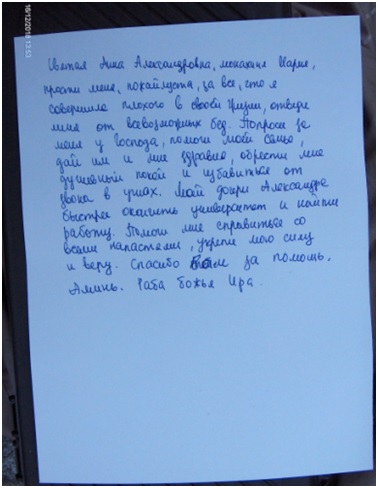 16/12/2018 13:53
Святая Анна Александровна, монахиня Мария,
прости меня, пожалуйста, за все, что я
совершила плохого в своей жизни, отведи
меня от всевозможных бед. Попроси за
меня у Господа, помоги моей семье,
дай им и мне здравие, обрести мне
душевный покой и избавиться от
звона в ушах. Моей дочери Александре
быстрее окончить университет и найти
работу. Помоги мне справиться со
всеми напастями, укрепи мою силу
и веру. Спасибо Вам за помощь.
Аминь. Раба Божья Ира.